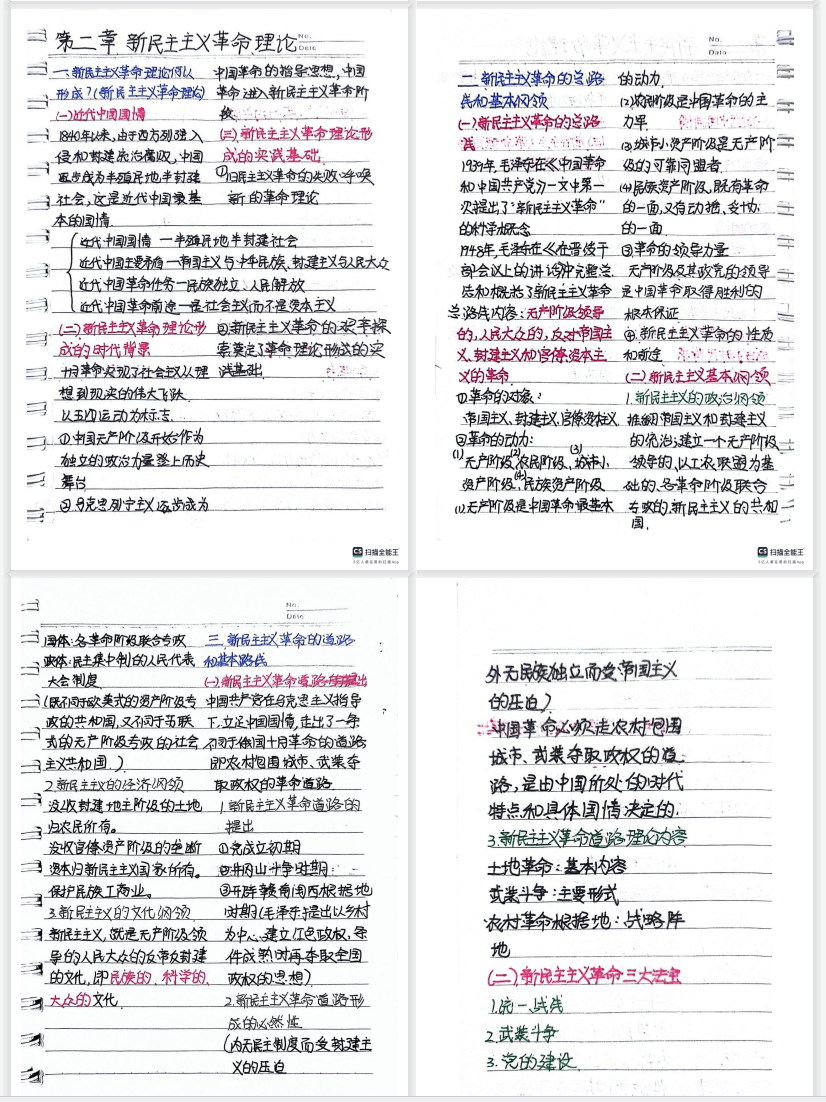 第二章 新民主主义革命理论
No.
Date
一.新民主主义革命理论何以
形成?(新民主主义革命理论)
(一)近代中国国情
1840年以来,由于西方列强入
侵和封建统治腐败,中国
逐步成为半殖民地半封建
社会,这是近代中国最基
本的国情.
近代中国国情 — 半殖民地半封建社会
近代中国主要矛盾 — 帝国主义与中华民族、封建主义与人民大众
近代中国革命任务 — 民族独立、人民解放
近代中国革命前途 — 是社会主义而不是资本主义
(二)新民主主义革命理论形
成的时代背景
十月革命发现了社会主义从理
想到现实的伟大飞队
以五四运动为标志.
①中国无产阶级开始作为
独立的政治力量登上历史
舞台
②马克思列宁主义逐步成为
中国革命的指导思想,中国
革命进入新民主主义革命阶
段
(三)新民主主义革命理论形
成的实践基础.
①旧民主主义革命的失败呼唤
新的革命理论
②新民主主义革命的艰辛探
索奠定了革命理论形成的实
践基础.
No.
Date
二.新民主主义革命的总路
线和基本纲领
(一)新民主主义革命的总路
线
1939年,毛泽东在《中国革命
和中国共产党》一文中第一
次提出了"新民主主义革命"
的科学概念
1948年,毛泽东在《在晋绥干
部会议上的讲话》中完整总
结和概括了新民主主义革命
总路线内容:无产阶级领导
的,人民大众的,反对帝国主
义、封建主义和官僚资本主
义的革命
①革命的对象:
帝国主义、封建主义、官僚资本主义
②革命的动力:
(1)无产阶级、(2)农民阶级、(3)城市小
资产阶级、(4)民族资产阶级
(1)无产阶级是中国革命最基本
的动力.
(2)农民阶级是中国革命的主
力军.
(3)城市小资产阶级是无产阶
级的可靠同盟者.
(4)民族资产阶级,既有革命
的一面,又有动摇、妥协
的一面
③革命的领导力量
无产阶级及其政党的领导
是中国革命取得胜利的
根本保证
④.新民主主义革命的性质
和前途
(二)新民主主义基本纲领
1.新民主主义的政治纲领
推翻帝国主义和封建主义
的统治,建立一个无产阶级
领导的、以工农联盟为基
础的、各革命阶级联合
专政的,新民主主义的共和
国.
No.
Date
国体:各革命阶级联合专政
政体:民主集中制的人民代表
大会制度
(既不同于欧美式的资产阶级专
政的共和国,又不同于苏联
式的无产阶级专政的社会
主义共和国.)
2.新民主主义的经济纲领
没收封建地主阶级的土地
归农民所有。
没收官僚资产阶级的垄断
资本归新民主主义国家所有。
保护民族工商业。
3.新民主主义的文化纲领
新民主主义,就是无产阶级领
导的人民大众的反帝反封建
的文化,即民族的、科学的、
大众的文化.
三.新民主主义革命的道路
和基本路线
(一).新民主主义革命道路提出
中国共产党在马克思主义指导
下.立足中国国情,走出了一条
不同于俄国十月革命的道路
即农村包围城市、武装夺
取政权的革命道路.
1.新民主主义革命道路的
提出
①党成立初期
②井冈山斗争时期
③开辟赣南闽西根据地
时期(毛泽东提出以乡村
为中心.建立红色政权,条
件成熟时再夺取全国
政权的思想)
2.新民主主义革命道路形
成的必然性
(内无民主制度而受封建主
义的压迫
外无民族独立而受帝国主义
的压迫)
中国革命必须走农村包围
城市、武装夺取政权的道
路,是由中国所处的时代
特点和具体国情决定的.
3.新民主主义革命道路理论内容
土地革命:基本内容
武装斗争:主要形式
农村革命根据地:战略阵
地
(二).新民主主义革命三大法宝
1.统一战线
2.武装斗争
3.党的建设
CS 扫描全能王
3亿人都在用的扫描App
CS 扫描全能王
3亿人都在用的扫描App